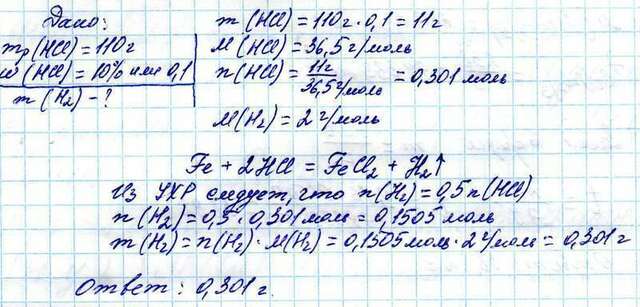 Дано:
mр(HCl) = 110г
ω(HCl) = 10% или 0,1
m(H₂) – ?
m(HCl) = 110г · 0,1 = 11г
M(HCl) = 36,5г/моль
n(HCl) = 11г / 36,5г/моль = 0,301 моль
M(H₂) = 2г/моль
Fe + 2HCl = FeCl₂ + H₂↑
Из УХР следует, что n(H₂) = 0,5n(HCl)
n(H₂) = 0,5 · 0,301 моль = 0,1505 моль
m(H₂) = n(H₂) · M(H₂) = 0,1505 моль · 2г/моль = 0,301г
Ответ: 0,301г.